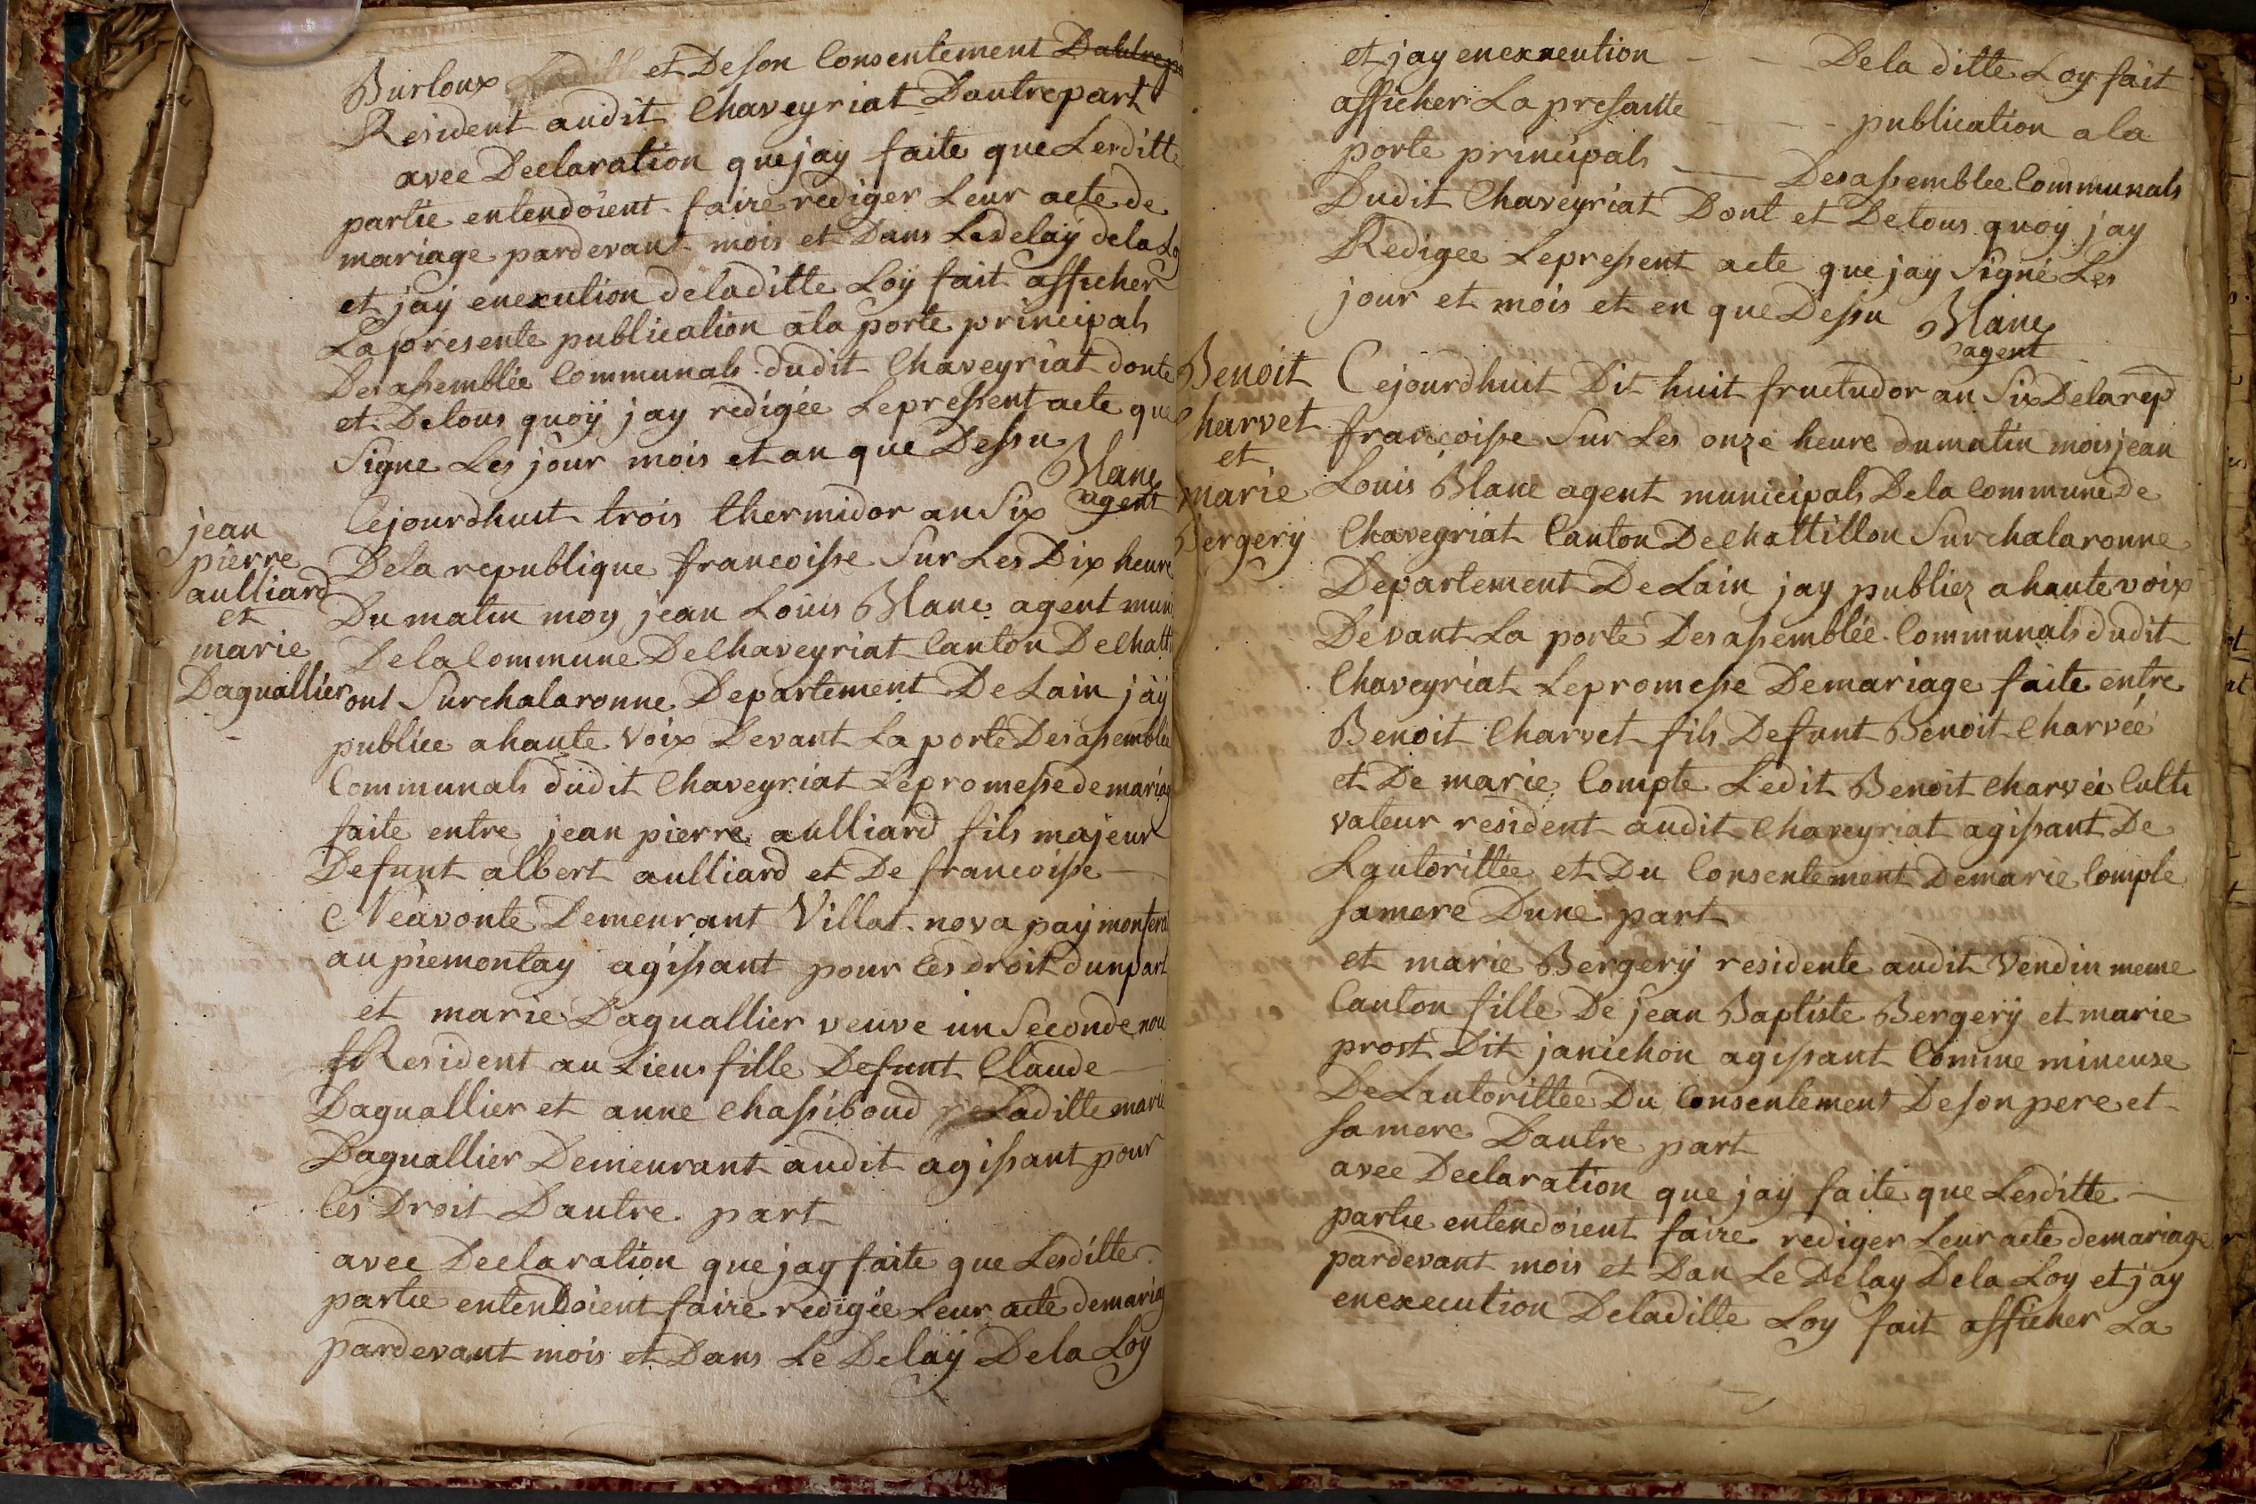 Burloux et De son Consentement Dautrepa
Resident audit Chaveyriat Dautrepart
avec Declaration que jay faite que Lesditte
partie entendoient faire rediger Leur acte de
mariage pardevant mois et Dans Le delay dela Lo
et jay enexcution deladitte Loy fait afficher
La presente publication ala porte principals
Desassemblée Communals dudit Chaveyriat donte
et Detous quoy jay redigée Lepressent acte que
Signe Les jour mois et an que Dessu
Blanc
agent
jean
pierre
aulliard
et
marie
Daguallier
Cejourdhuit trois thermidor an Six
Dela republique francoisse Sur Les Dix heure
Du matin moy jean Louis Blanc agent muni
Dela Commune De Chaveyriat Canton De Chatt
ont Surchalaronne Departement De Lain jay
publiée a haute voix Devant La porte Desassemblée
Communals dudit Chaveyriat Lepromesse de mariag
faite entre jean pierre aulliard fils majeur
Defunt albert aulliard et De francoisse
Neavonte Demeurant Villat nova pay monfera
au piemontay agissant pour ces droit dunpart
et marie Daguallier veuve un Seconde nou
Resident au Lieu fille Defunt Claude
Daguallier et anne Chassiboud Laditte marie
Daguallier Demeurant audit agissant pour
ces Droit Dautre part
avec Declaration que jay faite que Lesditte
partie entendoient faire redigée Leur acte demariag
pardevant mois et Dans Le Delay Dela Loy
et jay enexceution Dela ditte Loy fait
afficher La presante publication ala
porte principals Desassemblee Communals
Dudit Chaveyriat Dont et Detous quoy jay
Redigee Lepressent acte que jay Signé Les
jour et mois et en que Dessu
Blanc
agent
Benoit
Charvet
et
marie
Bergery
Cejourdhuit Dit huit fructudor an Six Dela rep
francoisse Sur Les onze heure dumatin mois jean
Louis Blanc agent municipals Dela Commune De
Chaveyriat Canton De Chattillon Surchalaronne
Departement De Lain jay publiez a haute voix
Devant La porte Desassemblée Communals dudit
Chaveyriat Lepromesse Demariage faite entre
Benoit Charvet fils Defunt Benoit Charvée
et De marie Compte Ledit Benoit Charvéi Culti
vateur resident audit Chaveyriat agissant De
Lautorittée et Du Consentement Demarie Comple
samere Dune part
et marie Bergery residente audit Vendin meme
Canton fille De jean Baptiste Bergery et marie
prost Dit janichon agissant Comme mineuse
De Lautorittee Du Consentement Deson pere et
samere Dautre part
avec Declaration que jay faite que Lesditte
partie entendoient faire rediger Leur acte demariage
pardevant mois et Dan Le Delay Dela Loy et jay
enexecution Deladitte Loy fait afficher La